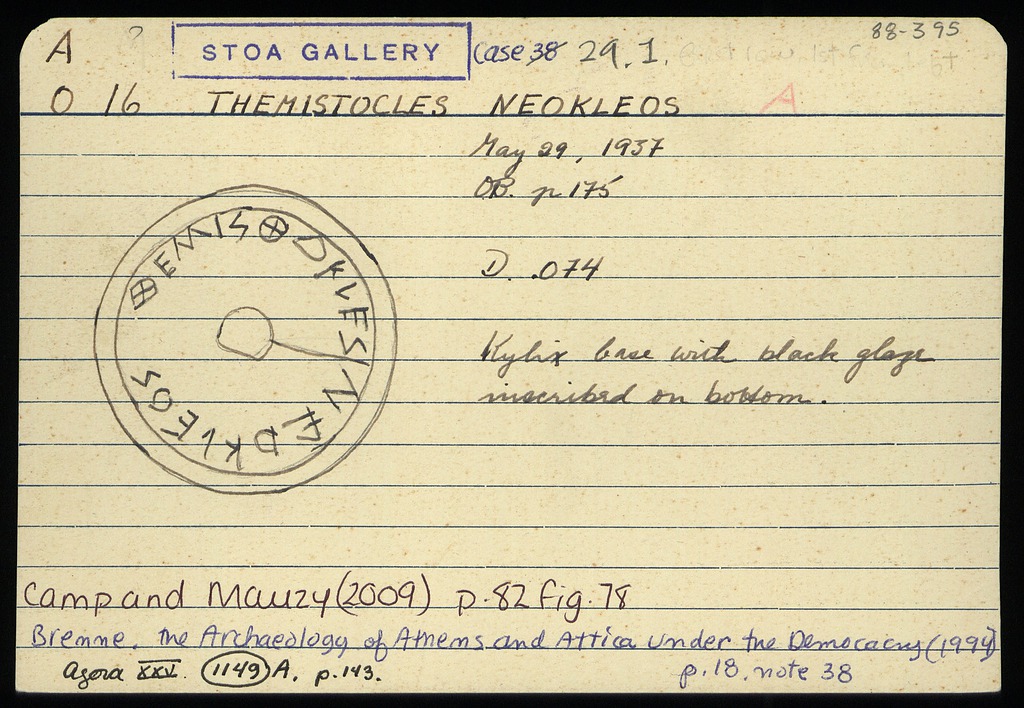 A ? STOA GALLERY Case 38 29.1. 88-395
O 16 THEMISTOCLES NEOKLEOS A
May 29, 1937
OB. p 175
D. .074
Kylix base with black glaze
inscribed on bottom.
⊗EMIS⊗OKLES NEOKLEOS
Camp and Mauzy (2009) p.82 fig.78
Bremme. the Archaeology of Athens and Attica under the Democacny (1994)
p.18, note 38
Agora XXV. 1149 A. p.143.